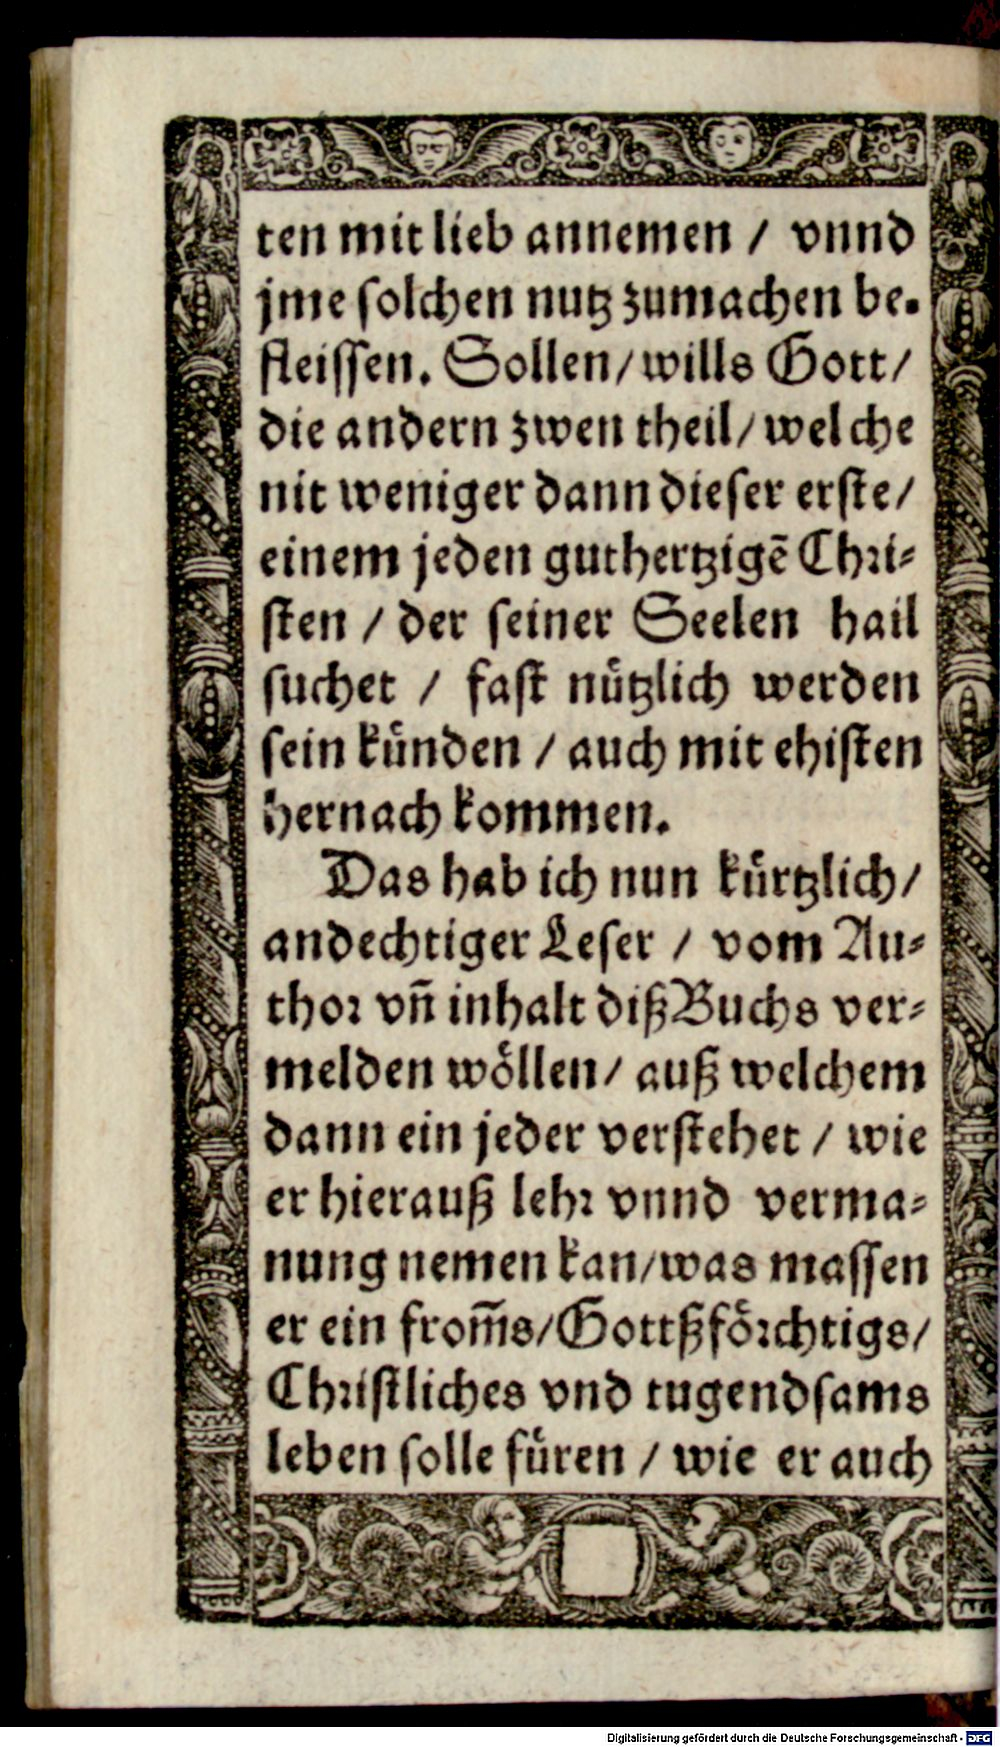 ten mit lieb annemen / vnnd
jme solchen nutz zumachen be-
fleissen. Sollen / wills Gott /
die andern zwen theil / welche
nit weniger dann dieser erste /
einem jeden guthertzigē Chri-
sten / der seiner Seelen hail
suchet / fast nuͤtzlich werden
sein kuͤnden / auch mit ehisten
hernach kommen.
Das hab ich nun kuͤrtzlich /
andechtiger Leser / vom Au-
thor vn̄ inhalt diß Buchs ver-
melden woͤllen / auß welchem
dann ein jeder verstehet / wie
er hierauß lehr vnnd verma-
nung nemen kan / was massen
er ein from̄s / Gottßfoͤrchtigs /
Christliches vnd tugendsams
leben solle fuͤren / wie er auch
Digitalisierung gefördert durch die Deutsche Forschungsgemeinschaft - DFG